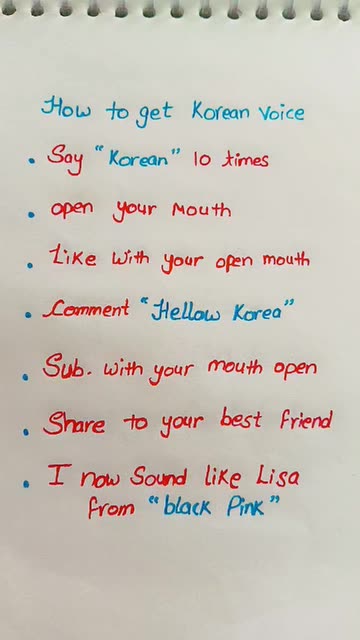 How to get Korean Voice
• Say "Korean" 10 times
• open your Mouth
• Like with your open mouth
• Comment "Hellow Korea"
• Sub. with your mouth open
• Share to your best friend
• I now Sound like Lisa
from "black Pink"